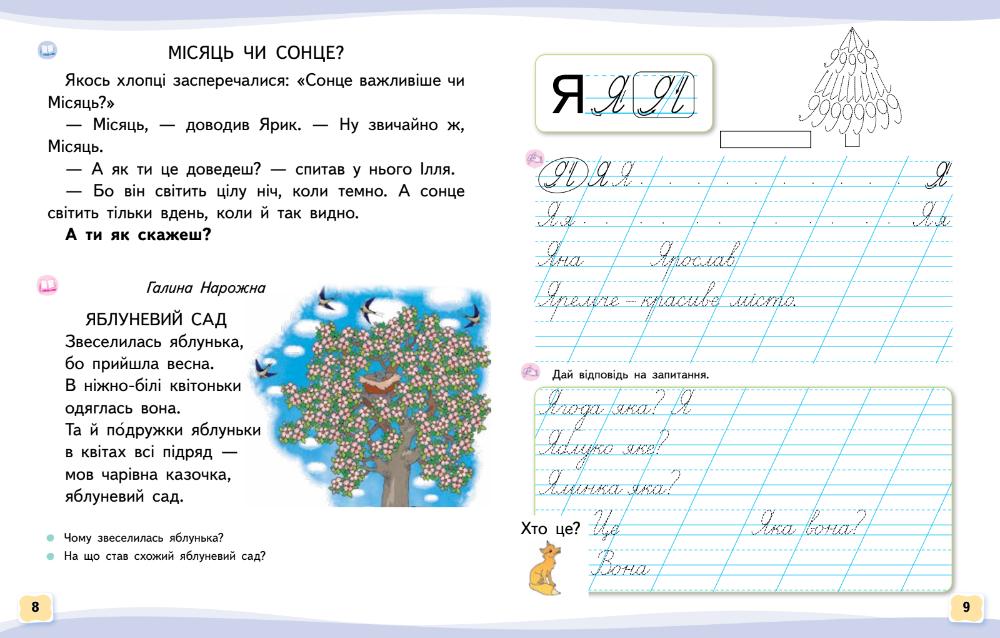 МІСЯЦЬ ЧИ СОНЦЕ?
Якось хлопці засперечалися: «Сонце важливіше чи
Місяць?»
— Місяць, — доводив Ярик. — Ну звичайно ж,
Місяць.
— А як ти це доведеш? — спитав у нього Ілля.
— Бо він світить цілу ніч, коли темно. А сонце
світить тільки вдень, коли й так видно.
А ти як скажеш?
Галина Нарожна
ЯБЛУНЕВИЙ САД
Звеселилась яблунька,
бо прийшла весна.
В ніжно-білі квітоньки
одяглась вона.
Та й по́дружки яблуньки
в квітах всі підряд —
мов чарівна казочка,
яблуневий сад.
Чому звеселилась яблунька?
На що став схожий яблуневий сад?
8
Я Я Я
Я Я Я . . . . . . . . . Я
Яя . . . . . . . . . . Яя
Яна Ярослав
Яремче – красиве місто.
Дай відповідь на запитання.
Ягода яка? Я
Яблуко яке?
Ялинка яка?
Хто це? Це Яка вона?
Вона
9